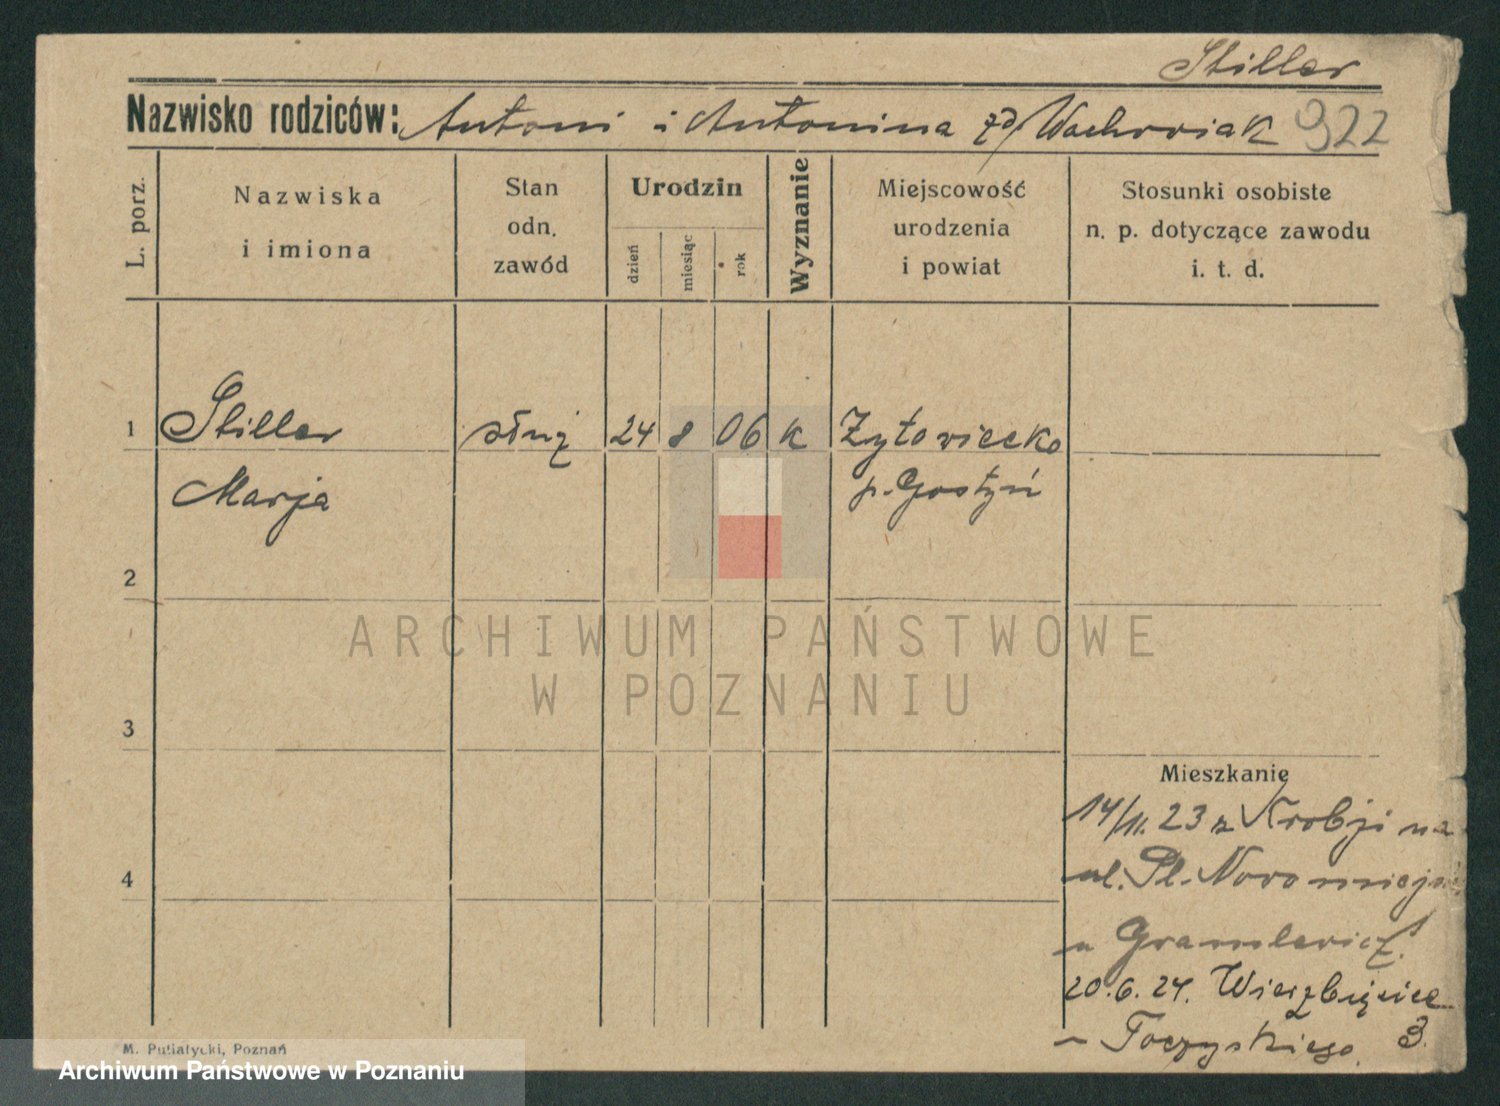 Stiller
Nazwisko rodziców: Antoni i Antonina zd/ Wachowiak 922
L. porz.
Nazwiska
i imiona
Stan
odn.
zawód
Urodzin
dzień
miesiąc
rok
Wyznanie
Miejscowość
urodzenia
i powiat
Stosunki osobiste
n. p. dotyczące zawodu
i. t. d.
1 Stiller służ 24 8 06 K Zytowiecko
Marja p. Gostyń
2
3
4
ARCHIWUM PAŃSTWOWE
W POZNANIU
Mieszkanie
14/11. 23 z Krobji na
ul. Pl. Nowomiejski
u
20.6.24. Wierzbięcice
u Toczyskiego 3.
M. Putiatycki, Poznań
Archiwum Państwowe w Poznaniu